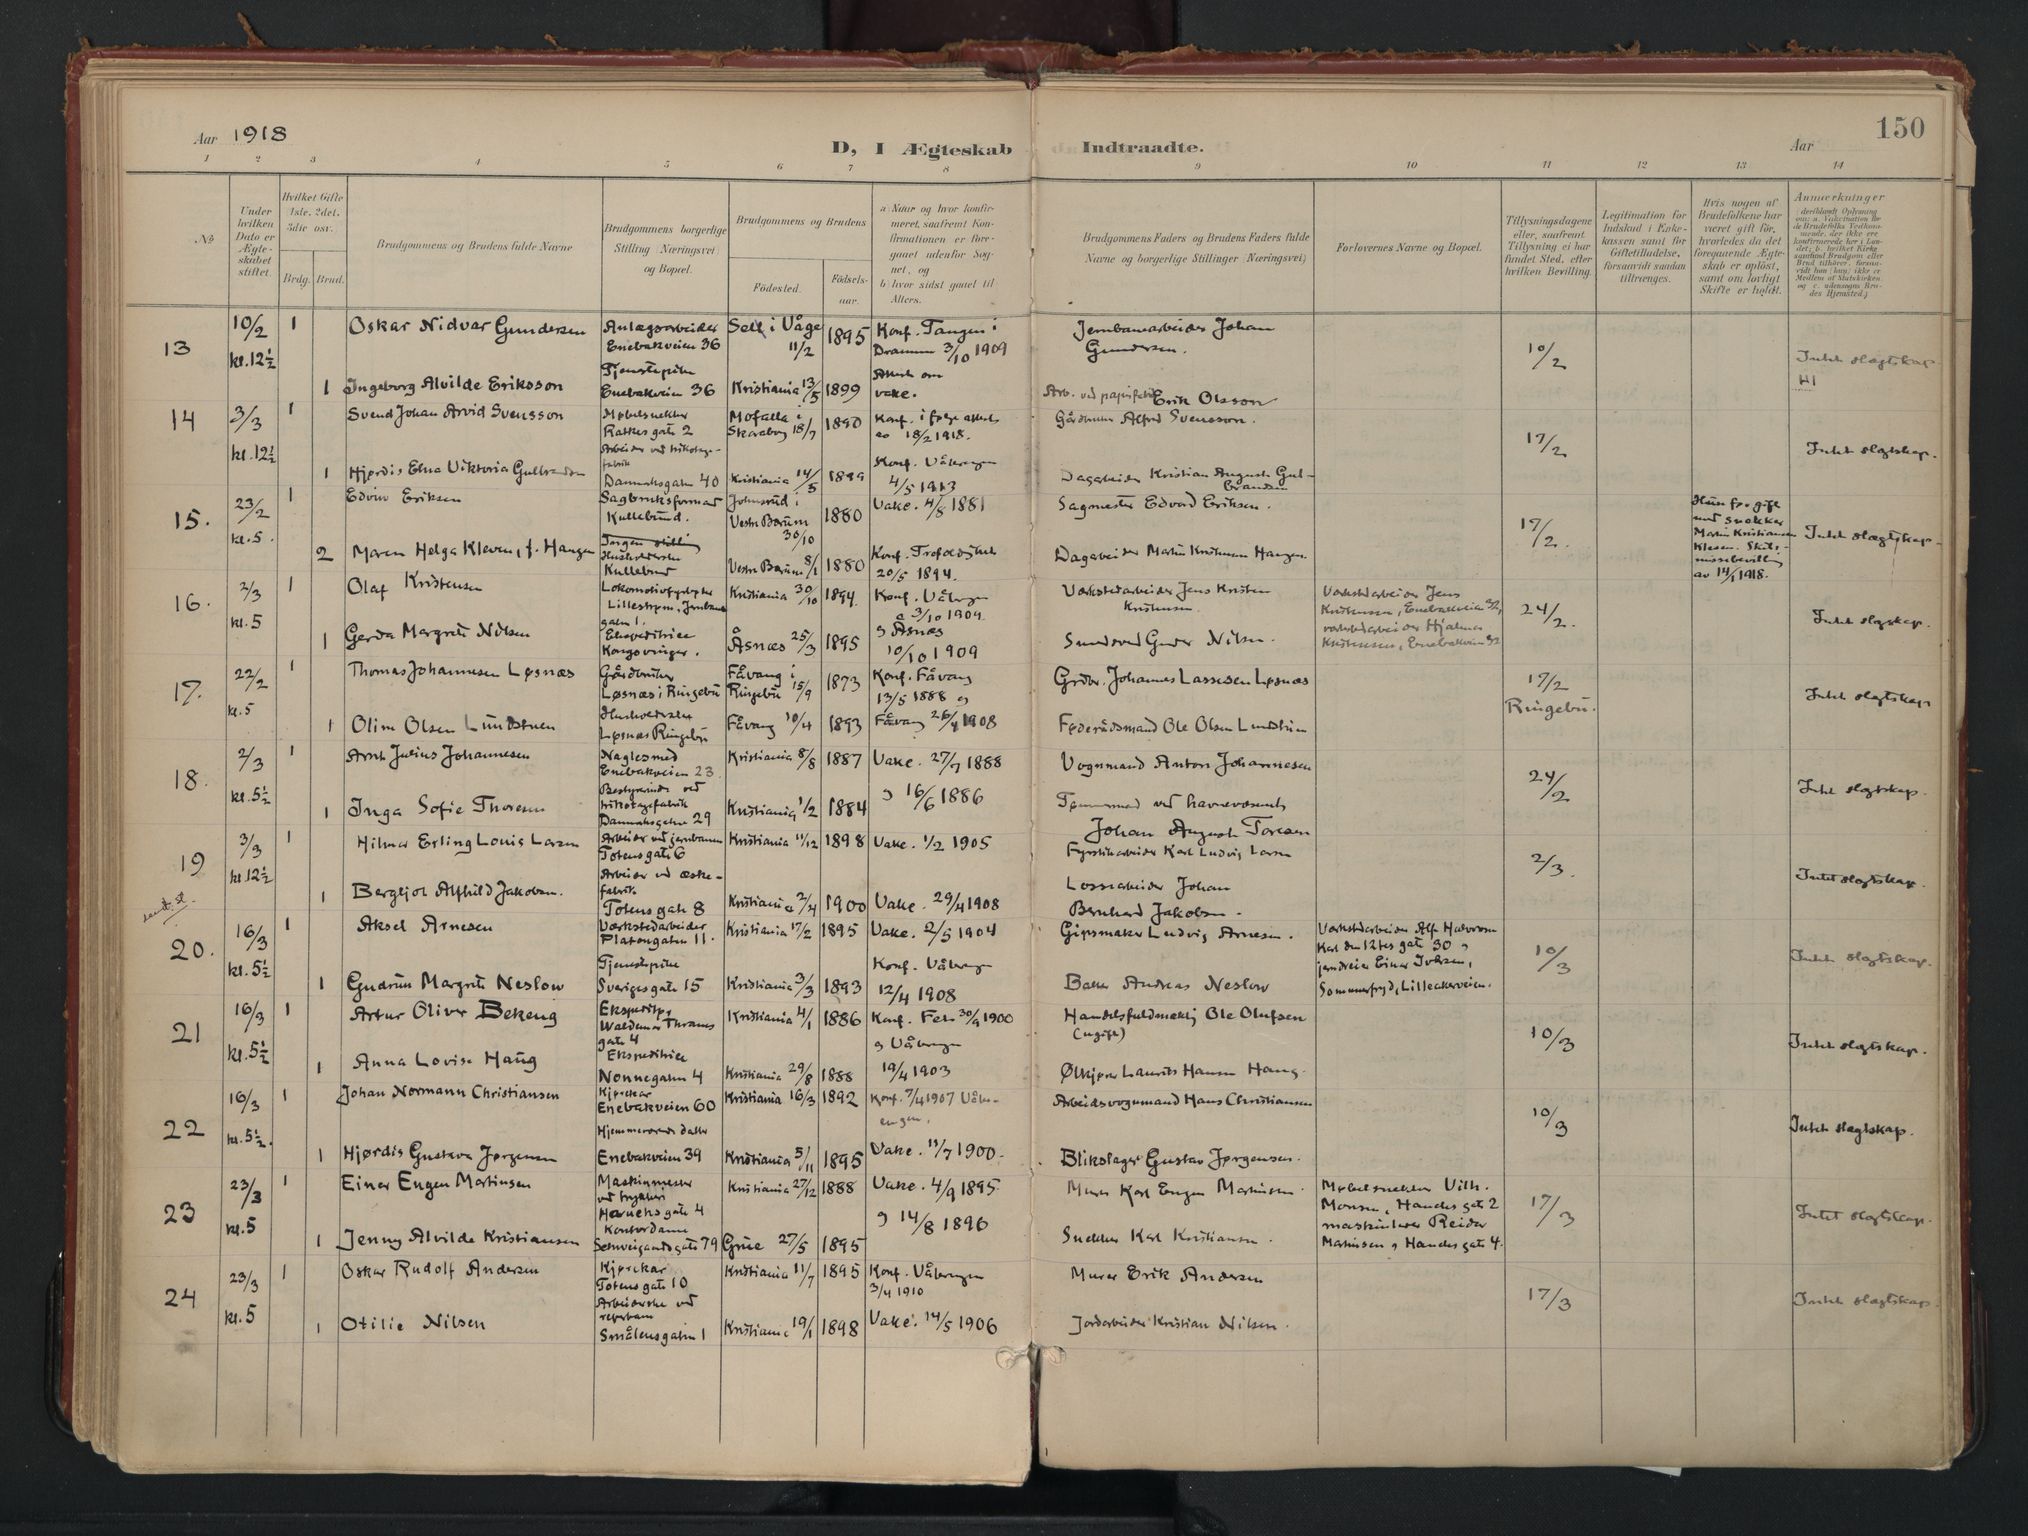 Aar 1918
D, I Ægteskab Indtraadte.
Aar
150
1 2 3 4 5 6 7 8 9 10 11 12 13 14
No
Under hvilken Dato er Ægteskabet stiftet.
Hvilket Gifte 1ste, 2det, 3die osv.
Brdg. Brud.
Brudgommens og Brudens fulde Navne
Brudgommens borgerlige Stilling (Næringsvei) og Bopæl.
Brudgommens og Brudens
Fødested.
Fødselsaar.
a Naar og hvor konfirmeret, saafremt Konfirmationen er foregaaet udenfor Sognet, og
b hvor sidst gaaet til Alters.
Brudgommens Faders og Brudens Faders fulde Navne og borgerlige Stillinger (Næringsvei)
Forlovernes Navne og Bopæl.
Tillysningsdagene eller, saafremt Tillysning ei har fundet Sted, efter hvilken Bevilling.
Legitimation for Indskud i Enkekassen samt for Giftetilladelse, forsaavidt saadan tiltrænges.
Hvis nogen af Brudefolkene har været gift før, hvorledes da det foregaaende Ægteskab er opløst, samt om lovligt Skifte er holdt.
Anmærkninger
13
10/2 kl. 12½
1 Oskar Nidvar Gundersen
Anlægsarbeider Enebakveien 36
Sell i Våge 11/2 1895
Konf. Tangen i Dramm 3/10 1909
Jernbanearbeider Johan Gundersen.
10/2
Intet slægtskap
1 Ingeborg Alvilde Eriksson
Tjenestepike Enebakveien 36
Kristiania 13/5 1899
Attest om vake.
Arb. ved papirfabrik Erik Olsson
14
3/3 kl. 12½
1 Svend Johan Arvid Svensson
Møbelsnekker Ratkes gate 2
Mofalla i Skaraborg 18/7 1890
Konf. ifølge attest av 18/2 1918.
Gårdbruker Alfred Svensson.
17/2
Intet slegtskap.
1 Hjørdis Elna Viktoria Gulbrandsen
Arbeider ved trikotagefabrik Danmarksgaten 40
Kristiania 14/5 1899
Konf. Vålerengen 4/5 1913
Dagarbeider Kristian August Gulbrandsen
15.
23/2 kl. 5.
1 Edvin Eriksen
Sagbruksformand Kullebund.
Johnsrud i Vestre Bærum 30/10 1880
Vake. 4/8 1881
Sagmester Edvard Eriksen.
17/2.
Hun før gift med snekker Martin Kristiansen Kleven. Skilsmissebevilling av 14/1 1918.
Intet slægtskap
2 Maren Helga Kleven, f. Haugen
Ingen stilling Husholderske Kullebund
Vestre Bærum 8/1 1880
Konf. 20/5 1894.
Dagarbeider Martin Kristiansen Haugen
16.
2/3 kl. 5
1 Olaf Kristensen
Lokomotivfyrbøter Lillestrøm, Jernbanegaten 1.
Kristiania 30/10 1894.
Konf. Vålerengen 3/10 1909
Verkstedarbeider Jens Kristen Kristensen.
Verkstedarbeider Jens Kristensen, Enebakveien 32, verkstedarbeider Hjalmar Kristensen, Enebakveien 32
24/2.
Intet slegskap.
1 Gerda Margrete Nilsen
Ekspeditrice Kongsvinger.
Åsnæs 25/3 1895
o Åsnæs 10/10 1909
Smedsvend Gunder Nilsen.
17.
22/2 kl. 5
1 Thomas Johannesen Løsnæs
Gårdbruker Løsnæs i Ringebu
Fåvang i Ringebu 15/9 1873
Konf. Fåvang 13/5 1888 og
Grdbr. Johannes Lassesen Løsnæs
17/2 Ringebu.
Intet slegtskap
1 Oline Olsen Lundstuen
Husholderske Løsnæs Ringebu
Fåvang 10/4 1893
Fåvang 26/4 1908
Føderådsmand Ole Olsen Lundstuen
18.
2/3 kl. 5½
1 Arnt Julius Johannesen
Naglesmed Enebakveien 23.
Kristiania 8/8 1887
Vake. 27/7 1888
Vognmand Anton Johannesen
24/2
Intet slegtskap.
1 Inga Sofie Thoresen
Bestyrerinde ved trikotagefabrik Danmarksgaten 29
Kristiania 1/2 1884
o 16/6 1886
Tømmermand ved havnevæsenet Johan August Toresen
19
3/3 kl. 12½
1 Hilmar Erling Louis Larsen
Arbeider ved jernbanen Totensgate 6
Kristiania 11/12 1898
Vake. 1/2 1905
Fyrstikarbeider Karl Ludvig Larsen
2/3.
Intet slegtskap.
1 Bergljot Alfhild Jakobsen.
Arbeider ved æskefabrik Totensgate 8
Kristiania 2/4 1900
Vake. 29/4 1908
Lossearbeider Johan Bernhard Jakobsen.
20.
16/3 kl. 5½
1 Aksel Arnesen
Verkstedarbeider Platousgaten 11.
Kristiania 17/2 1895
Vake. 2/5 1904
Gipsmaker Ludvig Arnesen.
Verkstedarbeider Alf Halvorsen Karl den 12tes gate 30 o jerndreier Einar Iversen, Sommerfryd, Lilleakerveien.
10/3
Intet slegtskap.
1 Gudrun Margrete Neslow
Tjenestepike Sverigesgate 15
Kristiania 3/3 1893
Konf. Vålerengen 12/4 1908
Baker Andreas Neslow
21
16/3 kl. 5½
1 Artur Oliver Bekeng
Ekspeditør Waldemar Thranes gate 4
Kristiania 4/1 1886
Konf. Fet 30/9 1900
Handelsfuldmektig Ole Olufsen (ugift)
10/3
Intet slegtskap.
1 Anna Lovise Haug
Ekspeditrice Nonnegaten 4
Kristiania 29/8 1888
o Vålerengen 19/4 1903
Ølkjører Laurits Hansen Haug.
22
16/3 kl. 5½.
1 Johan Normann Christiansen
Kjørekar Enebakveien 60
Kristiania 16/3 1892
Konf. 7/4 1907 Vålerengen.
Arbeidsvognmand Hans Christiansen
10/3
Intet slegtskap.
1 Hjørdis Gustava Jørgensen
Hjemmeværende datter Enebakveien 39
Kristiania 5/11 1895
Vake. 11/7 1900.
Blikslager Gustav Jørgensen.
23
23/3 kl. 5
1 Einar Eugen Martinsen
Maskinmester ved trykkeri Hauchs gate 4
Kristiania 27/12 1888
Vake. 4/9 1895.
Murer Karl Eugen Martinsen.
Møbelsnekker Vilh. Monsen, Handes gate 2 maskinlærer Reidar Martinsen, Handes gate 4.
17/3
Intet slegtskap.
1 Jenny Alvilde Kristiansen
Kontordame Schweigaardsgate 79
Grue 27/5 1895
o 14/8 1896
Snekker Karl Kristiansen.
24
23/3 kl. 5
1 Oskar Rudolf Andersen
Kjørekar Totensgate 10
Kristiania 11/7 1895
Konf. Vålerengen 3/4 1910
Murer Erik Andersen
17/3
Intet slegtskap.
1 Otilie Nilsen
Arbeiderske ved reperbanen Smålensgaten 1
Kristiania 19/1 1898
Vake. 14/5 1906
Jordarbeider Kristian Nilsen.